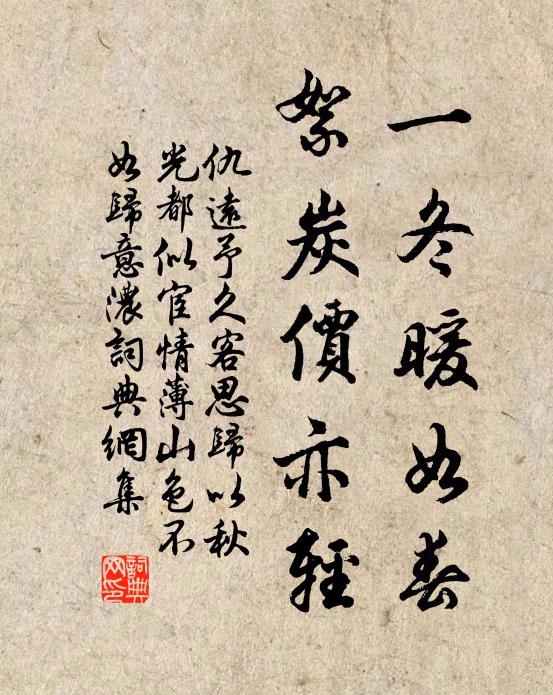 一冬暖如春
絮炭價亦輕
仇遠予久客思歸以秋
光都似宦情薄山色不
如歸意濃詞典網集
詞典
网印